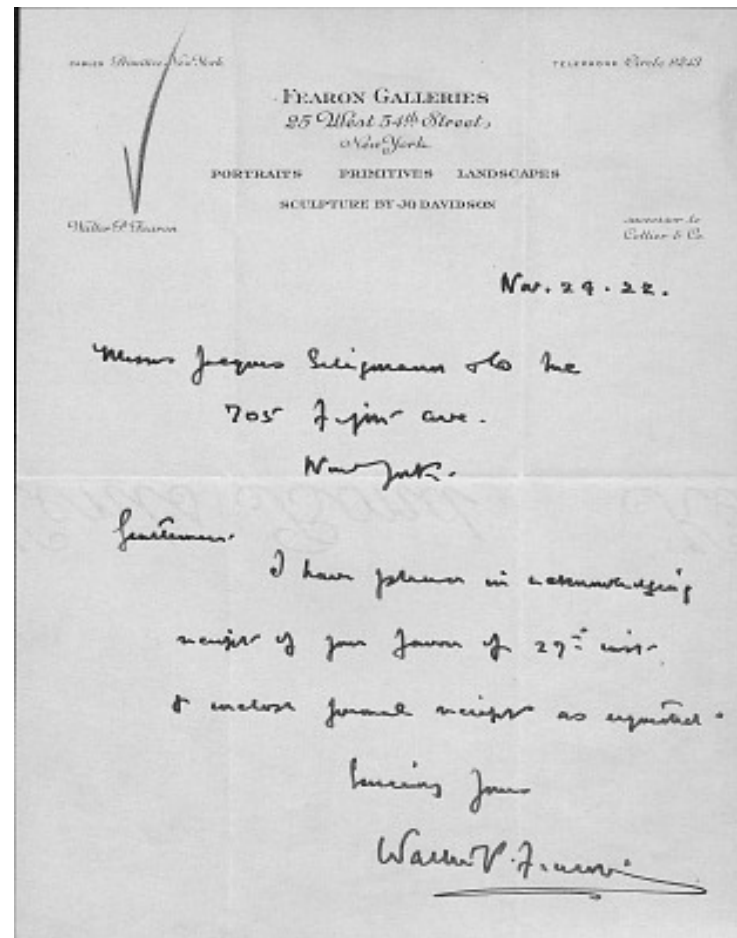 CABLES Primitive, New York
TELEPHONE Circle 9243
FEARON GALLERIES
25 West 54th Street,
New York
PORTRAITS PRIMITIVES LANDSCAPES
SCULPTURE BY JO DAVIDSON
Walter P. Fearon
successor to
Cottier & Co.
Nov. 29. 22.
Messrs Jacques Seligmann & Co Inc
705 Fifth ave.
New York.
Gentlemen.
I have pleasure in acknowledging
receipt of your favour of 29th inst.
& enclose formal receipt as requested.
Sincerely yours
Walter P. Fearon